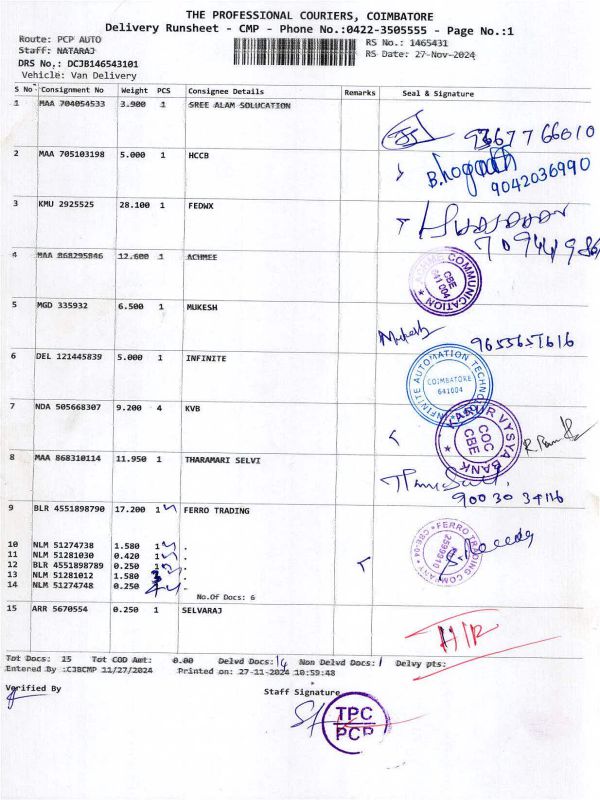 THE PROFESSIONAL COURIERS, COIMBATORE
Delivery Runsheet - CMP - Phone No.:0422-3505555 - Page No.:1
Route: PCP AUTO
RS No.: 1465431
Staff: NATARAJ
RS Date: 27-Nov-2024
DRS No.: DCJB146543101
Vehicle: Van Delivery
S No Consignment No Weight PCS Consignee Details Remarks Seal & Signature
1 MAA 704054533 3.900 1 SREE ALAM SOLUCATION
2 MAA 705103198 5.000 1 HCCB
9042036990
3 KMU 2925525 28.100 1 FEDWX
4 MAA 868295846 12.600 1 ACHMEE
COMMUNICATION
CBE
641 004
5 MGD 335932 6.500 1 MUKESH
Mukesh
6 DEL 121445839 5.000 1 INFINITE
INFINITE AUTOMATION
COIMBATORE
641004
7 NDA 505668307 9.200 4 KVB
KARUR VYSYA BANK
COC
CBE
8 MAA 868310114 11.950 1 THARAMARI SELVI
9 BLR 4551898790 17.200 1 FERRO TRADING
FERRO TRADING COMPANY
10 NLM 51274738 1.580 1 .
11 NLM 51281030 0.420 1 .
12 BLR 4551898789 0.250 1 .
13 NLM 51281012 1.580 .
14 NLM 51274748 0.250 .
No.Of Docs: 6
15 ARR 5670554 0.250 1 SELVARAJ
Tot Docs: 15 Tot COD Amt: 0.00 Delvd Docs: 14 Non Delvd Docs: 1 Delvy pts:
Entered By :CJBCMP 11/27/2024 Printed on: 27-11-2024 10:59:48
Verified By
Staff Signature
TPC
PCP